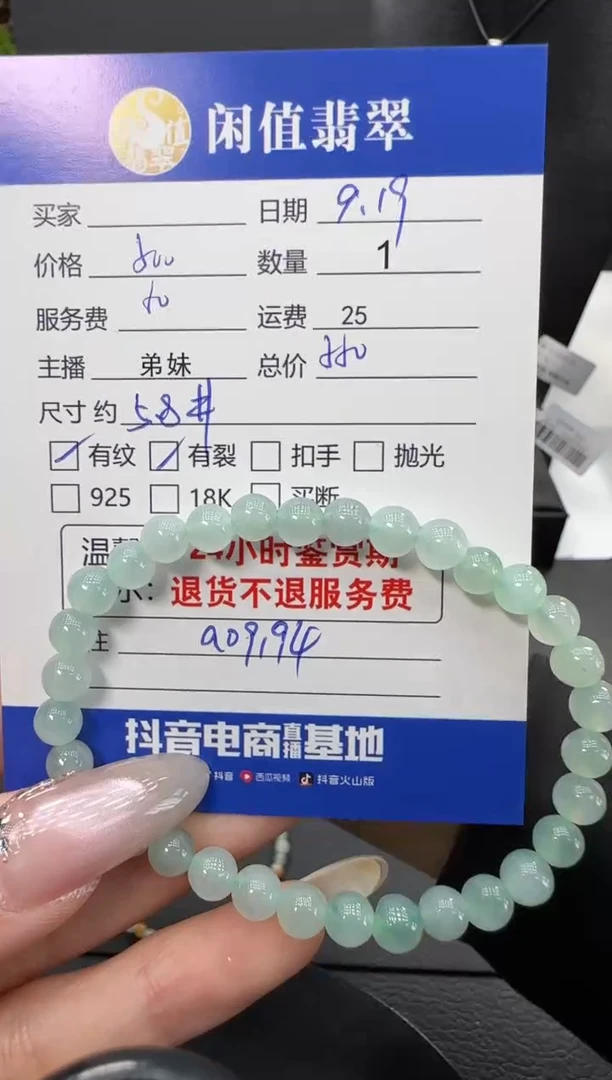 闲值翡翠
买家 日期 9.19
价格 800 数量 1
服务费 运费 25
主播 弟妹 总价
尺寸 约 58#
有纹 有裂 扣手 抛光
925 18K 买断
温 24小时鉴赏期
示: 退货不退服务费
注 a09,94
抖音电商直播基地
抖音 西瓜视频 抖音火山版